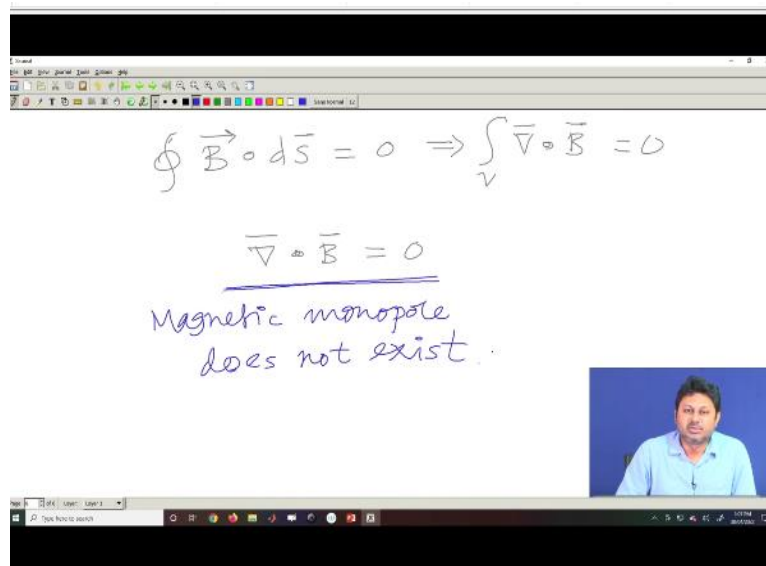 File Edit View Journal Tools Options Help
∮ B⃗ • dS̄ = 0 ⇒ ∫ᵥ ∇̄ • B̄ = 0
∇̄ • B̄ = 0
Magnetic monopole
does not exist.
Layer: Layer 1
Type here to search